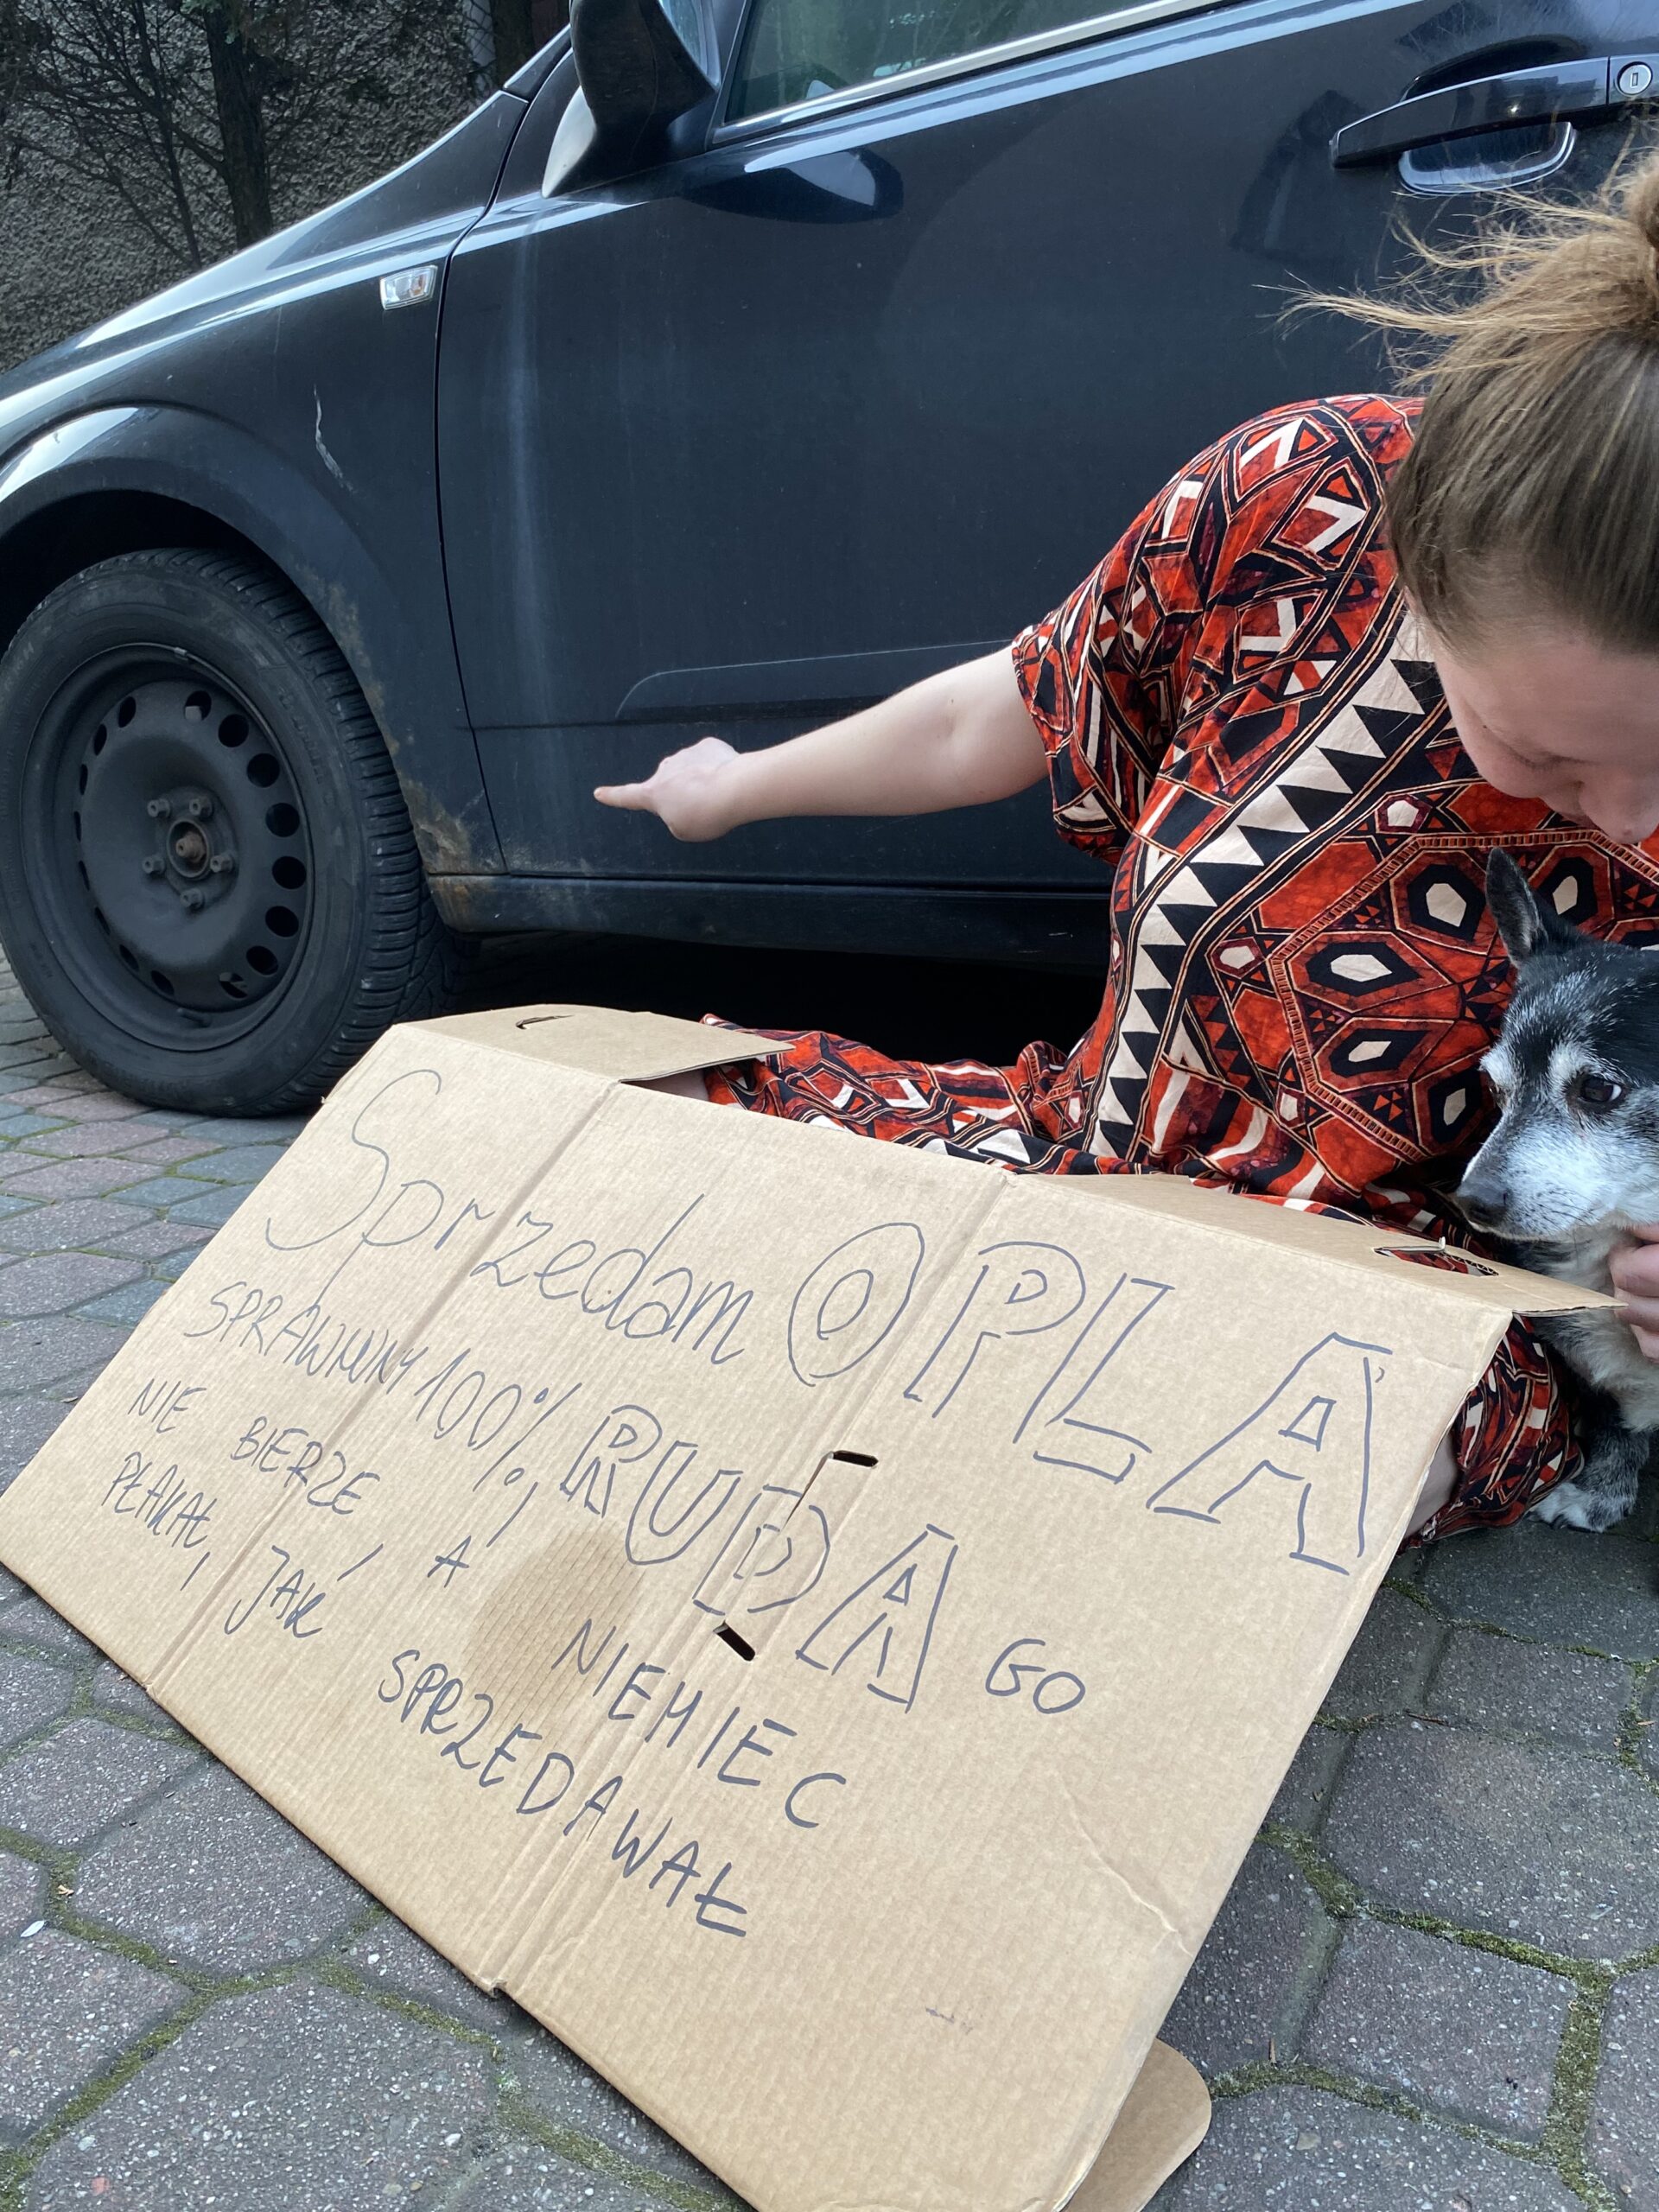 Sprzedam OPLA
SPRAWNNY 100%, RUDA GO
NIE BIERZE, A NIEMIEC
PŁAKAŁ, JAK SPRZEDAWAŁ